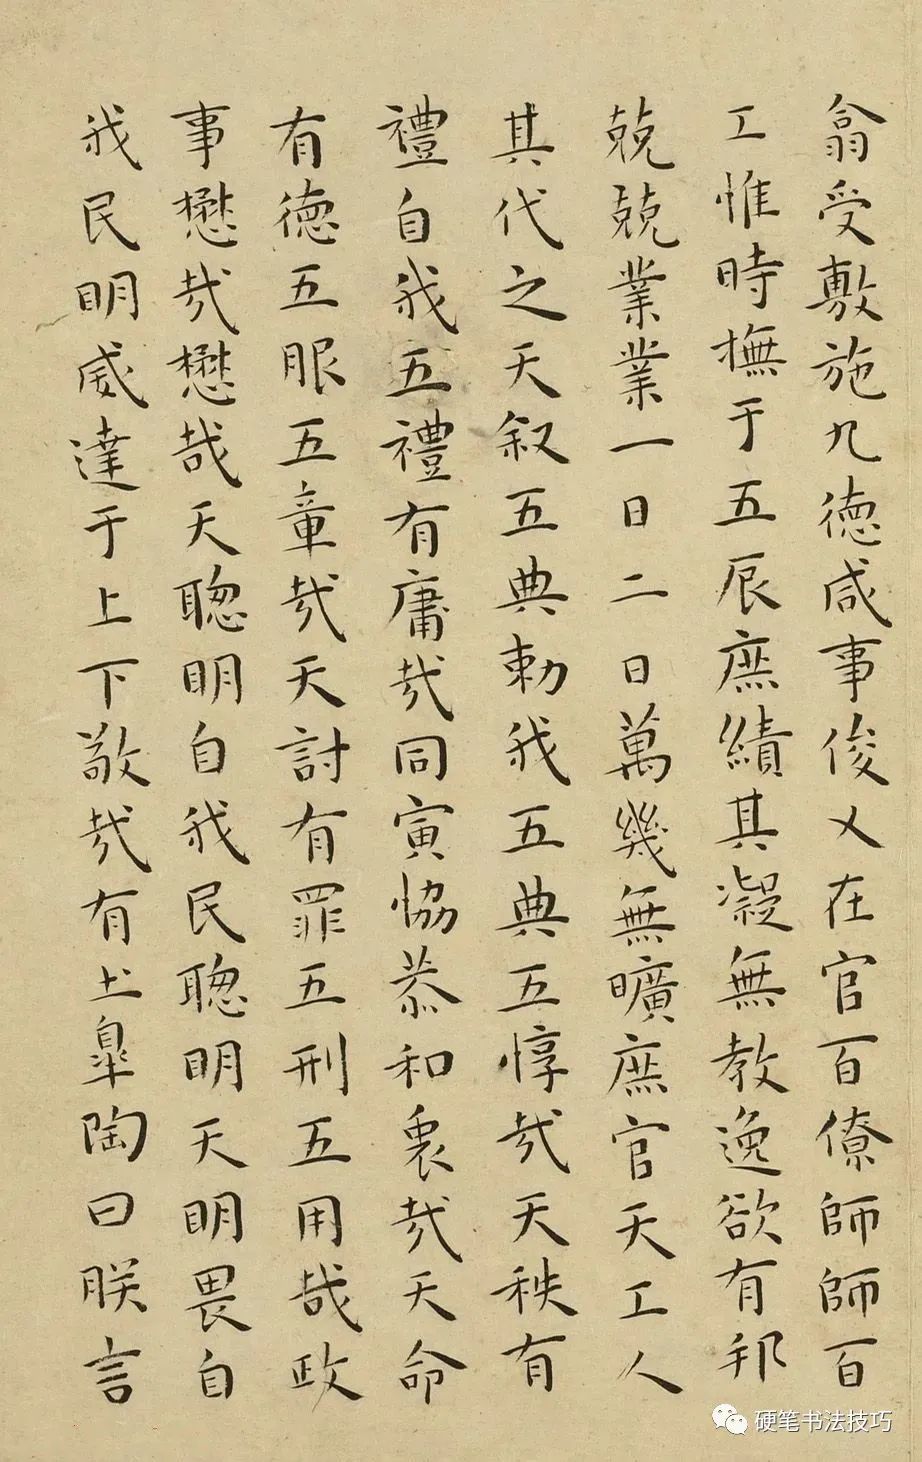 翕受敷施九德咸事俊乂在官百僚師師百
工惟時撫于五辰庶績其凝無教逸欲有邦
兢兢業業一日二日萬幾無曠庶官天工人
其代之天叙五典勅我五典五惇哉天秩有
禮自我五禮有庸哉同寅恊恭和衷哉天命
有德五服五章哉天討有罪五刑五用哉政
事懋哉懋哉天聦明自我民聦明天明畏自
我民明威達于上下敬哉有土皐陶曰朕言
硬笔书法技巧